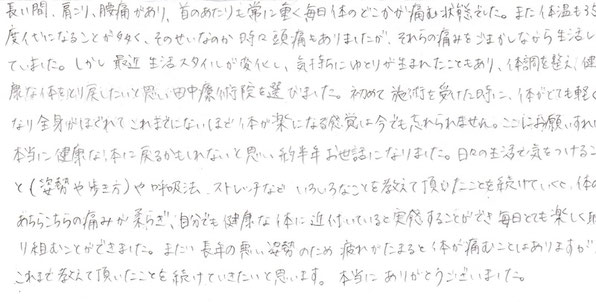 長い間、肩こり、腰痛があり、首のあたりも常に重く毎日体のどこかが痛む状態でした。また体温も35
度代になることが多く、そのせいなのか時々頭痛もありましたが、それらの痛みをごまかしながら生活し
ていました。しかし最近生活スタイルが変化し、気持ちにゆとりが生まれたこともあり、体調を整え、健
康な体をとり戻したいと思い田中療術院を選びました。初めて施術を受けた時に、体がとても軽く
なり全身がほぐれてこれまでにないほど体が楽になる感覚は今でも忘れられません。ここにお願いすれば
本当に健康な体に戻るかもしれないと思い約半年お世話になりました。日々の生活で気をつけるこ
と(姿勢や歩き方)や呼吸法、ストレッチなどいろいろなことを教えて頂いたことを続けていくと、体の
あちらこちらの痛みが柔らぎ、自分でも健康な体に近付いていると実感することができ毎日とても楽しく取
り組むことができました。まだ長年の悪い姿勢のため疲れがたまると体が痛むことはありますが
これまで教えて頂いたことを続けていきたいと思います。本当にありがとうございました。